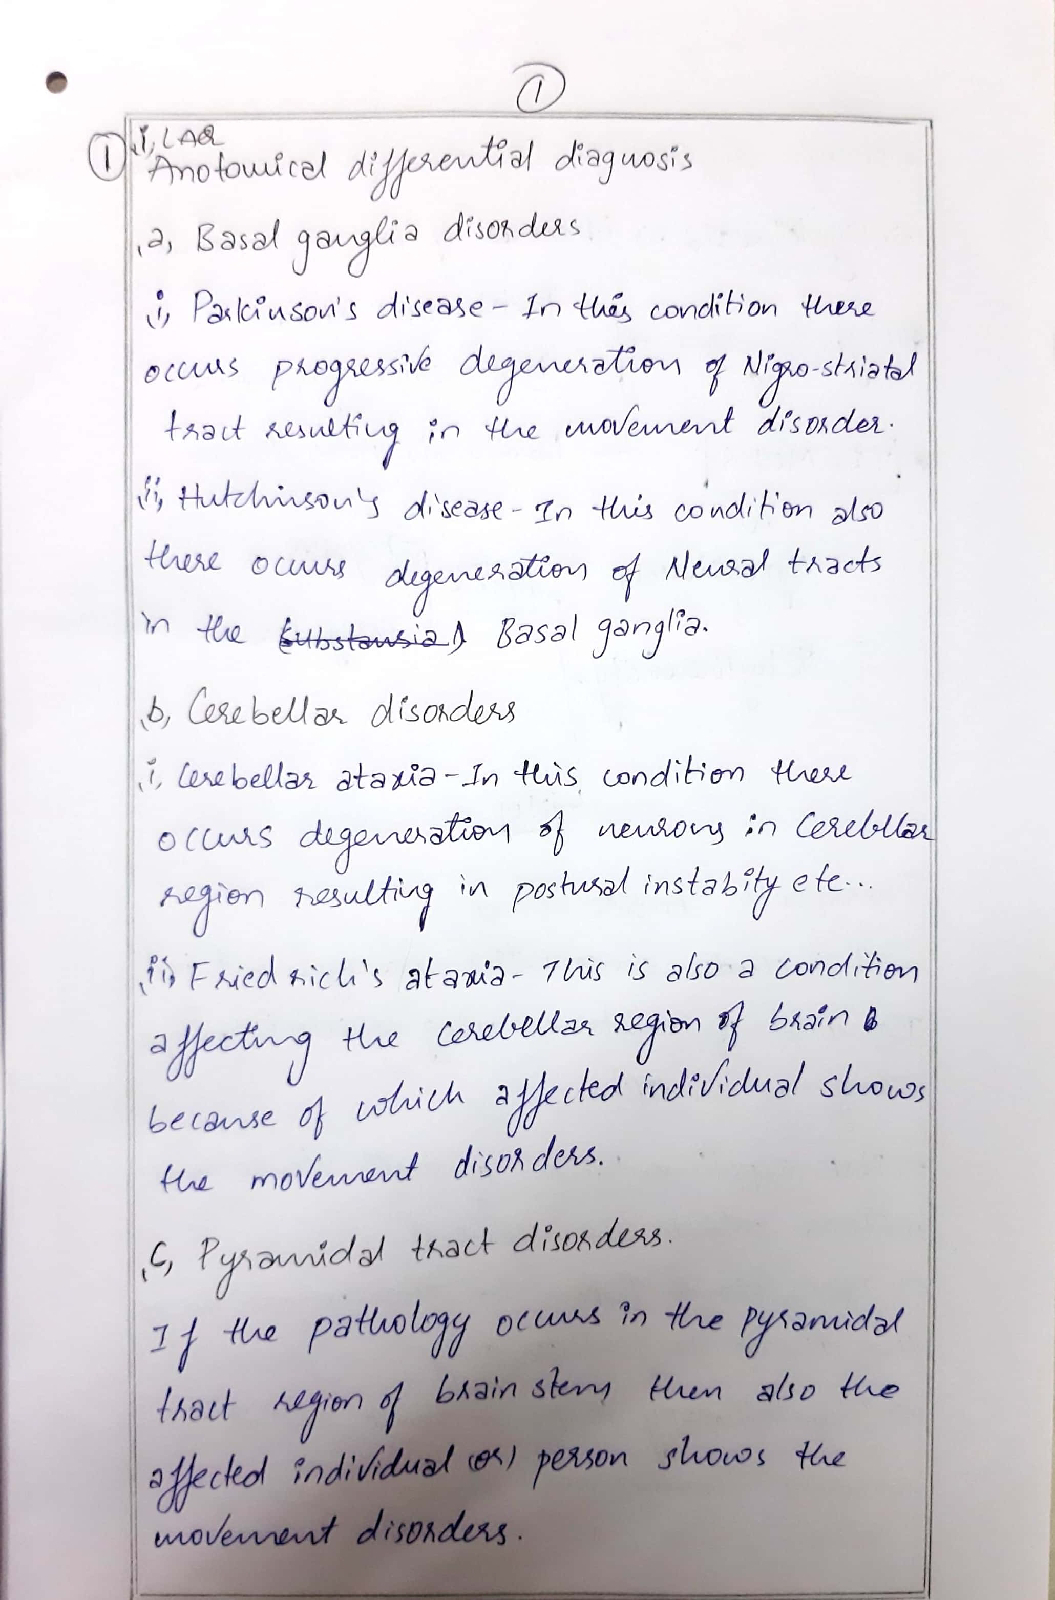 1
1 i, LAQ
Anotomical differential diagnosis
a, Basal ganglia disorders
i, Parkinson's disease - In this condition there
occurs progressive degeneration of Nigro-striatal
tract resulting in the movement disorder.
ii, Hutchinson's disease - In this condition also
there occurs degeneration of Neural tracts
in the (substansia) Basal ganglia.
b, Cerebellar disorders
i, Cerebellar ataxia - In this condition there
occurs degeneration of neurons in Cerebllar
region resulting in postural instabity etc...
ii, Friedrich's ataxia - This is also a condition
affecting the cerebellar region of brain
because of which affected individual shows
the movement disorders.
C, Pyramidal tract disorders.
If the pathology occurs in the pyramidal
tract region of brain stem then also the
affected individual (or) person shows the
movement disorders.